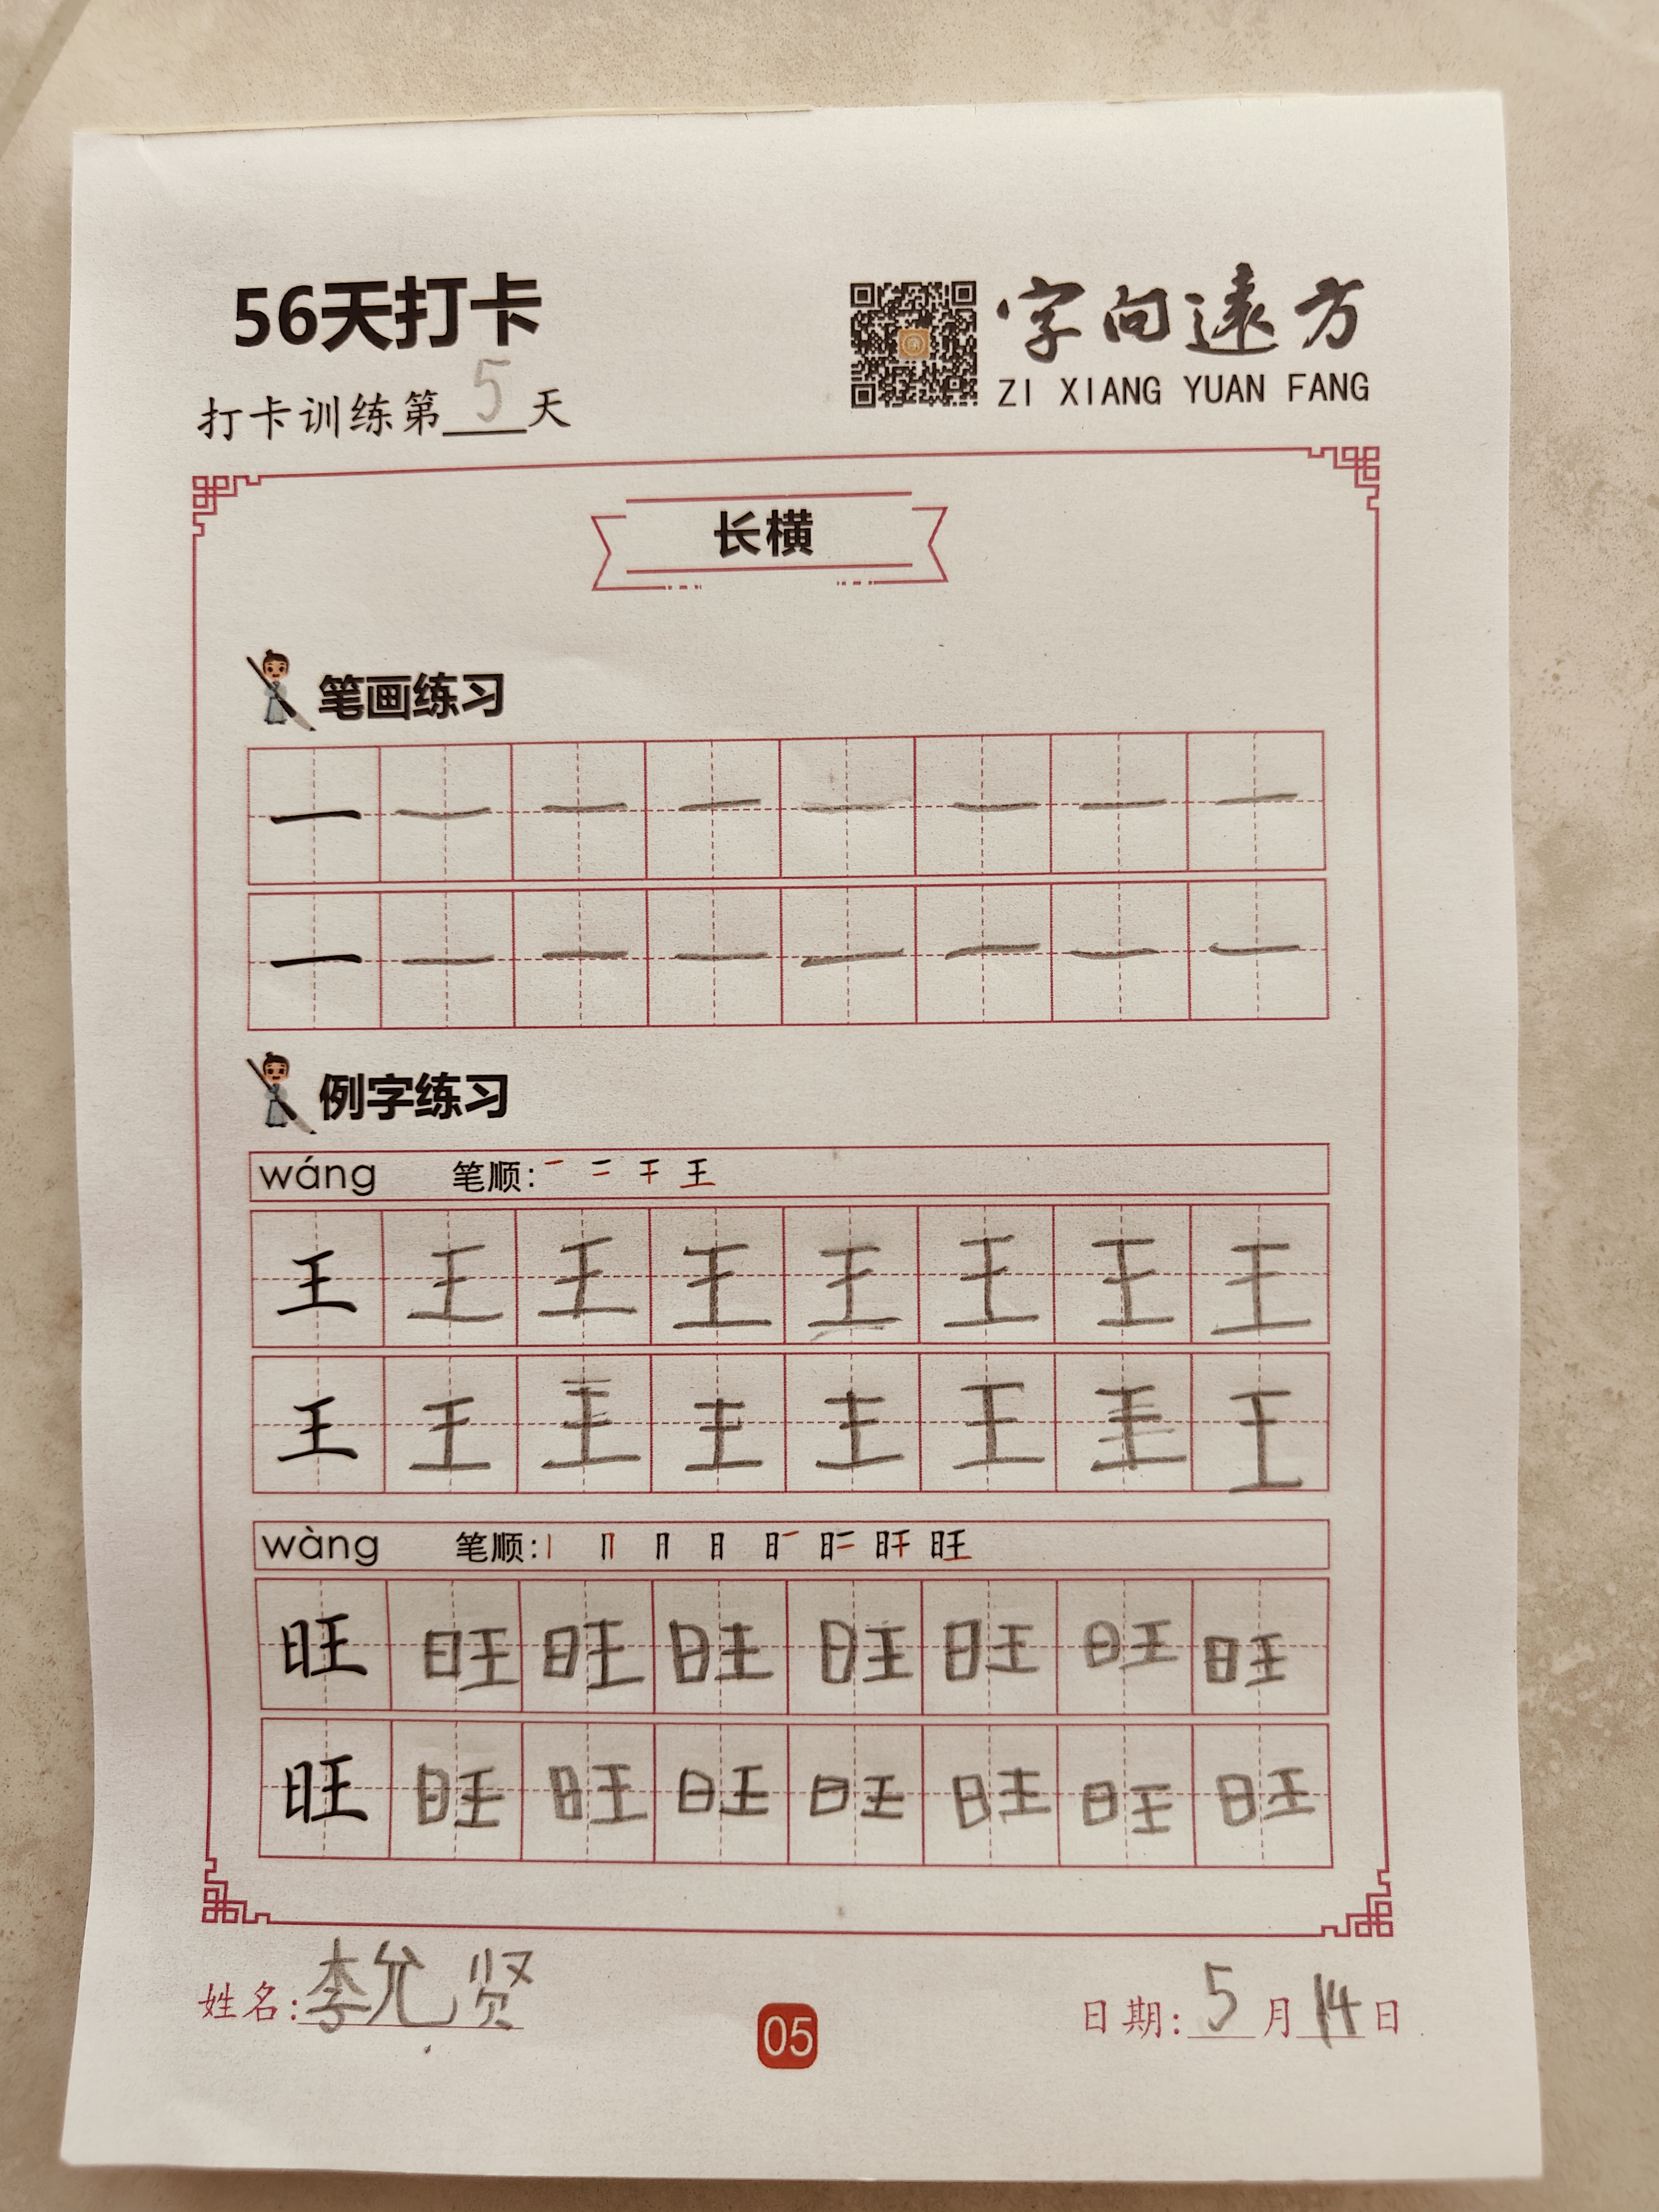 56天打卡
字向遠方
ZI XIANG YUAN FANG
打卡训练第5天
长横
笔画练习
一 一 一 一 一 一 一 一
一 一 一 一 一 一 一 一
例字练习
wáng 笔顺: 一 二 干 王
王 王 王 王 王 王 王 王
王 王 王 王 王 王 王 王
wàng 笔顺: 丨 冂 月 日 日一 日二 旰 旺
旺 旺 旺 旺 旺 旺 旺 旺
旺 旺 旺 旺 旺 旺 旺 旺
姓名:李允贤
05
日期:5月14日